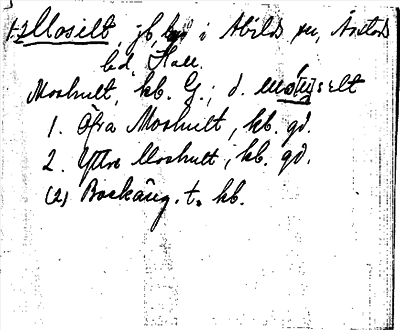 1-2 Mosilt, jb, i Abilds sn, Årstads
hd. Hall.
Moshult, kb. G.; d. mos[u]lt
1. Öfra Moshult, kb. gd.
2. Yttre Moshult, kb. gd.
(2) Backäng. t. kb.